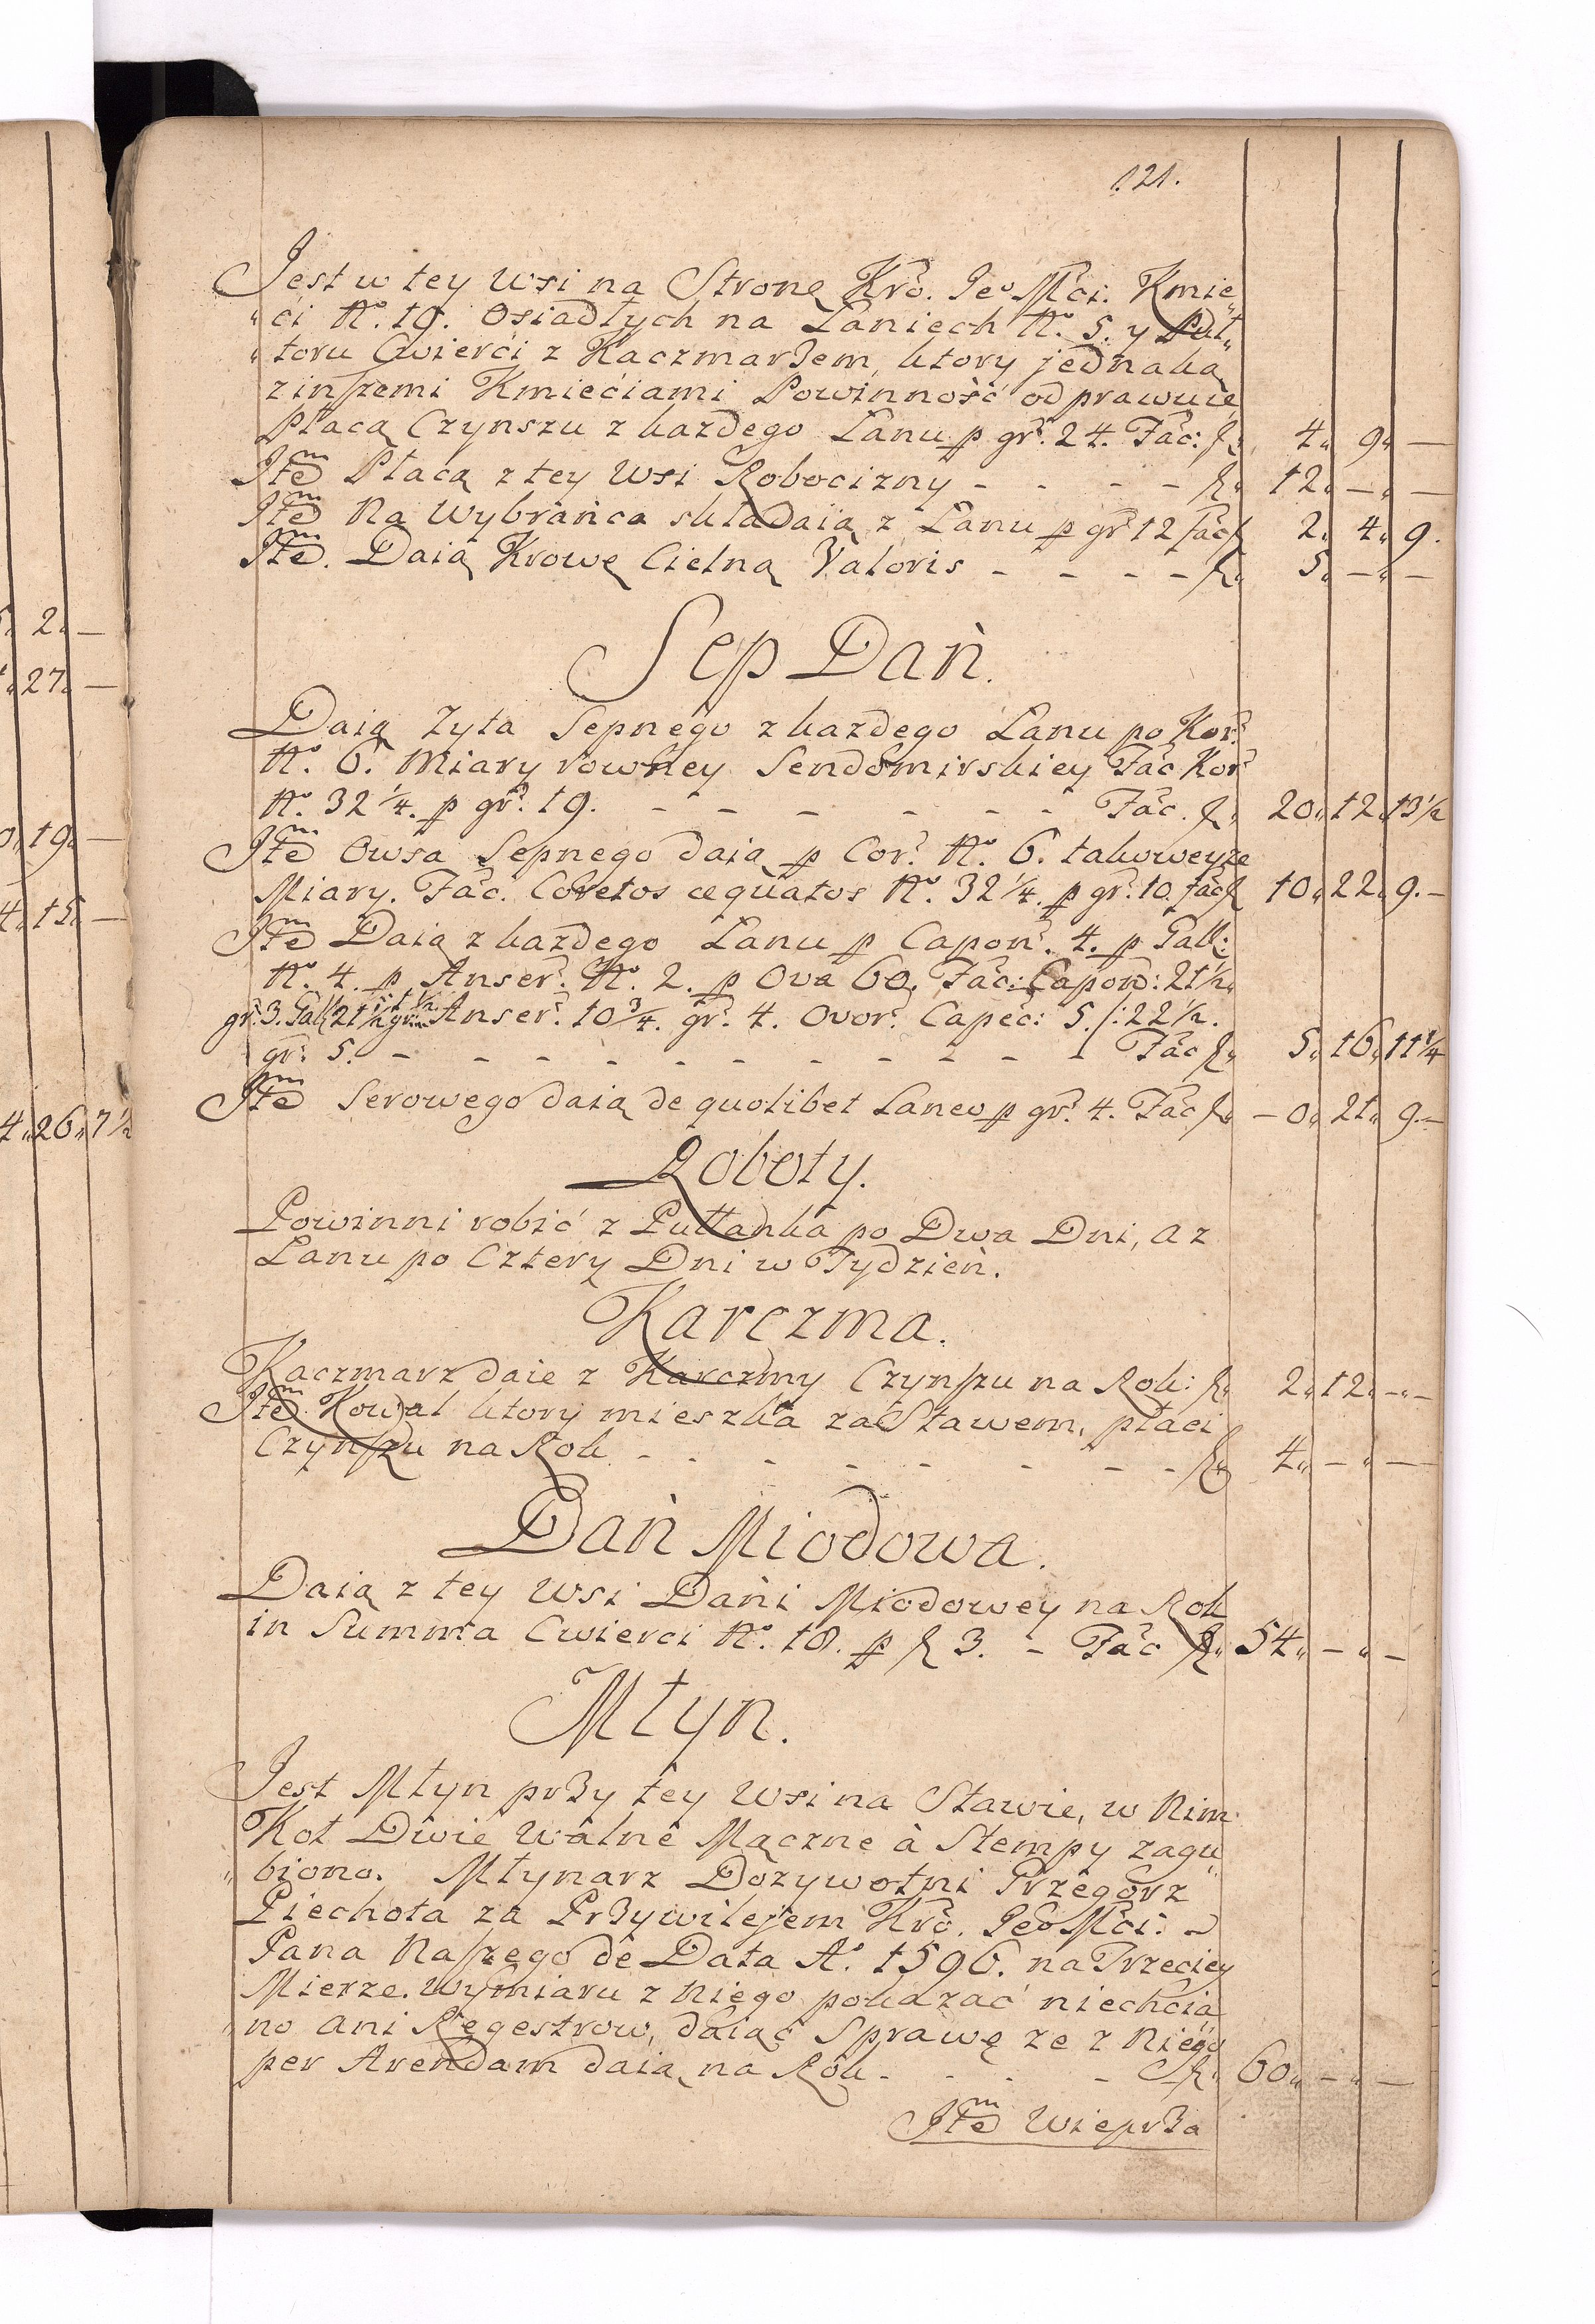 121.
Jest w tey Wsi na Stronę Kró. Je° Mći. Kmie„
„ci N°. 19. osiadłych na Łaniech N°. 5. y Puł„
„toru Cwierći z Kaczmarzem, ktory jednaką
z inszemi Kmiećiami Powinność odprawuie
Płacą Czynszu z każdego Łanu p gr. 24. Fac: f„ 4„ 9„ —
Item Płacą z tey Wsi Robocizny - - - - f„ 12„ —„ —
Item Na Wybrańca składaią z Łanu p gr 12 fac f 2„ 4„ 9.
Item. Daią Krowę Cielną Valoris - - - - f„ 5„ —„ —
Sep Dań.
Daią Żyta Sepnego z każdego Łanu po Kor.
N°. 6. Miary rowney Sendomirskiey Fac Kor
N°. 32 1/4. p gr. 19. - - - - - - Fac. f„ 20„ 12„ 13 1/2
Item Owsa Sepnego daią p Cor. N°. 6. takoweyże
Miary. Fac. Coretos æquatos N°. 32 1/4. p gr. 10. fac f 10„ 22„ 9.—
Item Daią z każdego Łanu p Capon. 4. p Gall:
N°. 4. p Anser. N°. 2. p Ova 60. Fac: Capon: 21 1/2„
gr. 3. Gall 21 1/2 gr. Anser. 10 3/4. gr. 4. Ovor. Capec: 5. /: 22 1/2.
gr: 5. - - - - - - - - - - Fac f„ 5„ 16„ 11 1/4
Item Serowego daią de quolibet Laneo p gr. 4. Fac f„ — 0„ 21„ 9.—
Roboty.
Powinni robić z Pułłanka po Dwa Dni, a z
Łanu po Cztery Dni w Tydzień.
Karczma.
Kaczmarz daie z Karczmy Czynszu na Rok: f„ 2„ 12„ —„—
Item Kował ktory mieszka za Stawem, płaci
Czynszu na Rok - - - - - - - f„ 4„ —„ —
Dań Miodowa.
Daią z tey Wsi Dańi Miodowey na Rok
in Summa Cwierci N°. 18. p f 3. - Fac f„ 54„ —„ —
Młyn.
Jest Młyn przy tey Wsi na Stawie, w Nim
Koł Dwie Walne Mączne à Stempy zagu„
„biono. Młynarz Dożywotni Grzegorz
Piechota za Przywilejem Kró. Je° Mći:
Pana Naszego de Data A°. 1596. na Trzeciey
Mierze. Wymiaru z Niego pokazać niechcia„
„no ani Regestrow, daiąc Sprawę że z Niego
per Arendam daią na Rok - - - - f„ 60„ —„ —
Item Wieprza
5„ 2„ —
27„ —
19„ —
4„ 15„ —
4„ 26„ 7 1/2